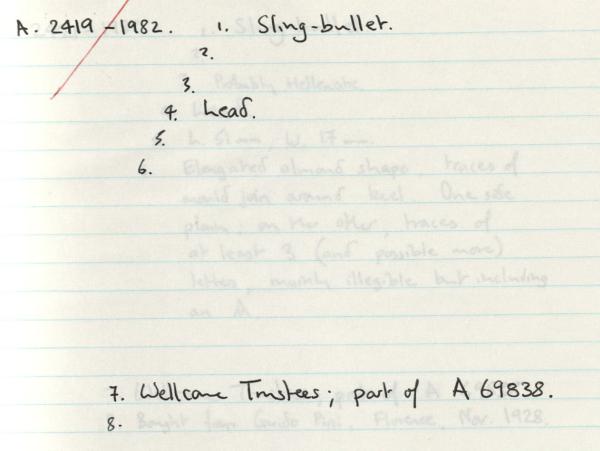 A. 2419 - 1982. 1. Sling-bullet.
2.
3. Probably Hellenistic.
4. Lead.
5. L. 51mm, W. 17mm.
6. Elongated almond shape, traces of
mould join around. One side
plain; on the other, traces of
at least 3 (and possible more)
letters, mainly illegible but including
an A.
7. Wellcome Trustees; part of A 69838.
8. Bought from Guido Pini, Florence, Nov. 1928.